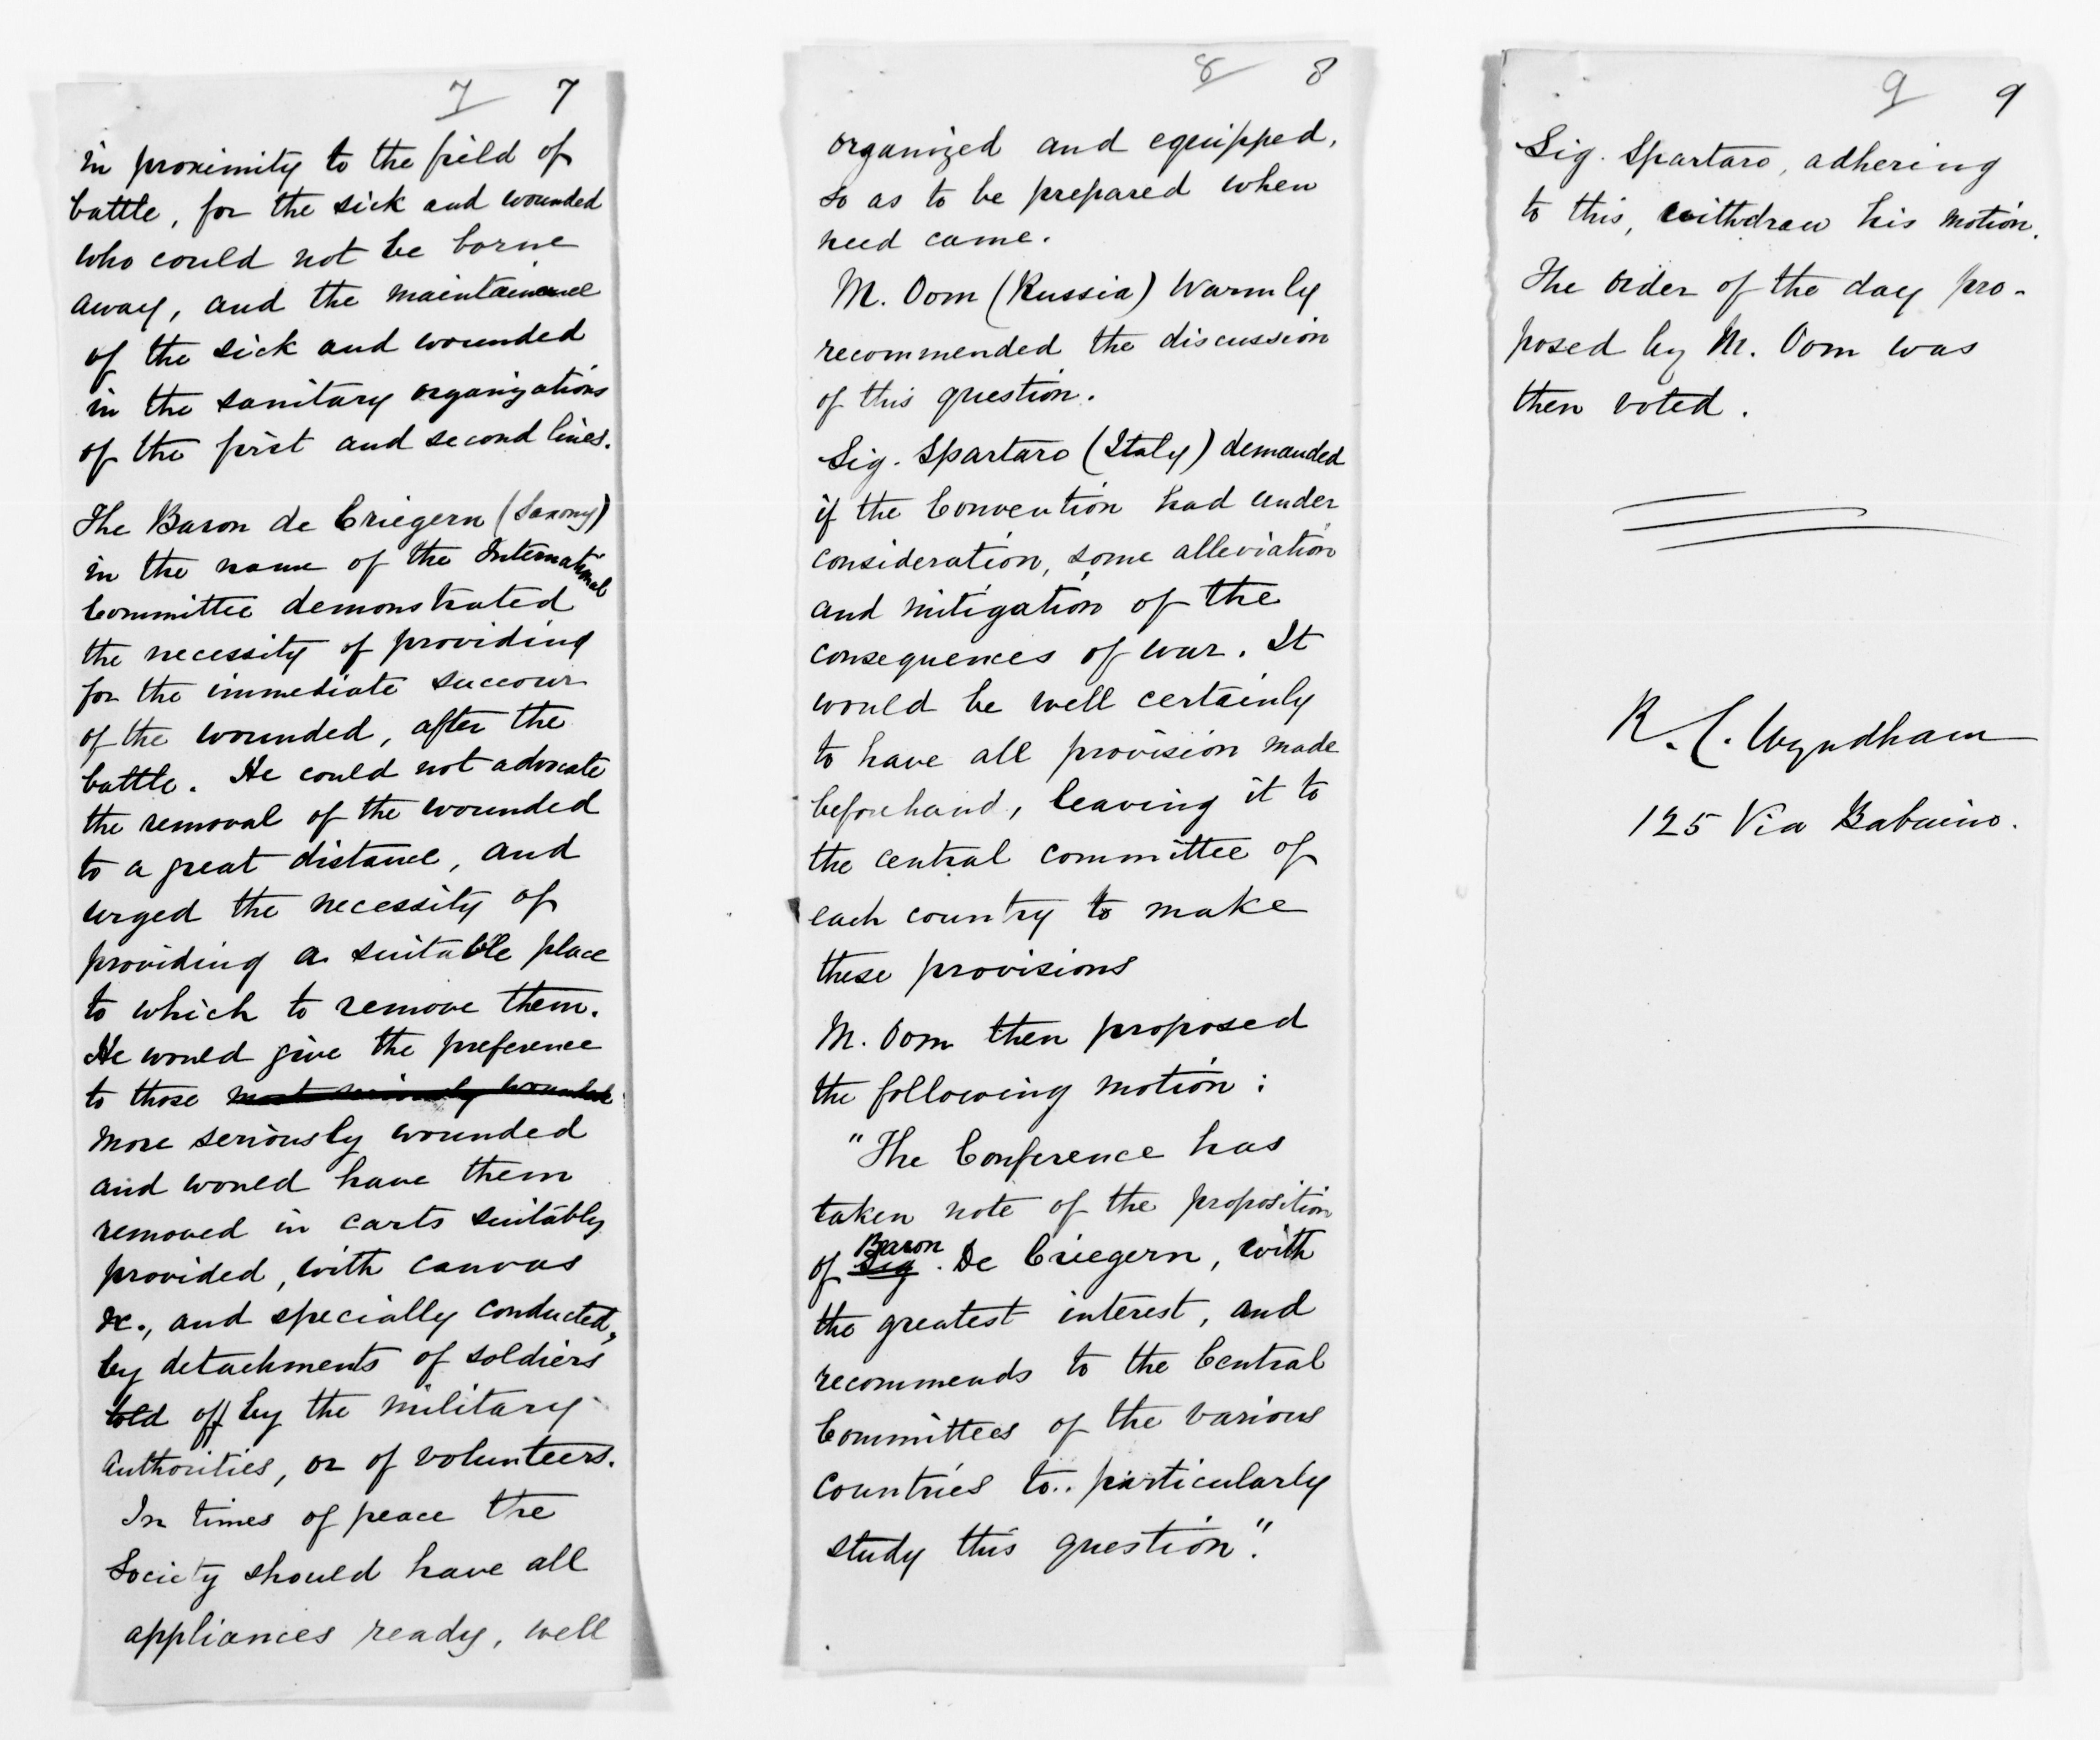 7 7
in proximity to the field of
battle, for the sick and wounded
who could not be borne
away, and the maintainence
of the sick and wounded
in the sanitary organizations
of the first and second lines.
The Baron de Criegern (Saxony)
in the name of the International
Committee demonstrated
the necessity of providing
for the immediate succour
of the wounded, after the
battle. He could not advocate
the removal of the wounded
to a great distance, and
urged the necessity of
providing a suitable place
to which to remove them.
He would give the preference
to those most seriously wounded
more seriously wounded
and would have them
removed in carts suitably
provided, with canvas
&c., and specially conducted,
by detachments of soldiers
told off by the military
authorities, or of volunteers.
In times of peace the
Society should have all
appliances ready, well
8 8
organized and equipped,
so as to be prepared when
need came.
M. Oom (Russia) warmly
recommended the discussion
of this question.
Sig. Spartaro (Italy) demanded
if the Convention had under
consideration, some alleviation
and mitigation of the
consequences of war. It
would be well certainly
to have all provision made
beforehand, leaving it to
the central committee of
each country to make
these provisions
M. Oom then proposed
the following motion:
"The Conference has
taken note of the proposition
Baron
of Sig. De Criegern, with
the greatest interest, and
recommends to the Central
Committees of the various
countries to.. particularly
study this question".
9 9
Sig. Spartaro, adhering
to this, withdraw his motion.
The order of the day pro-
posed by M. Oom was
then voted.
R. C. Wyndham
125 Via Babuino.